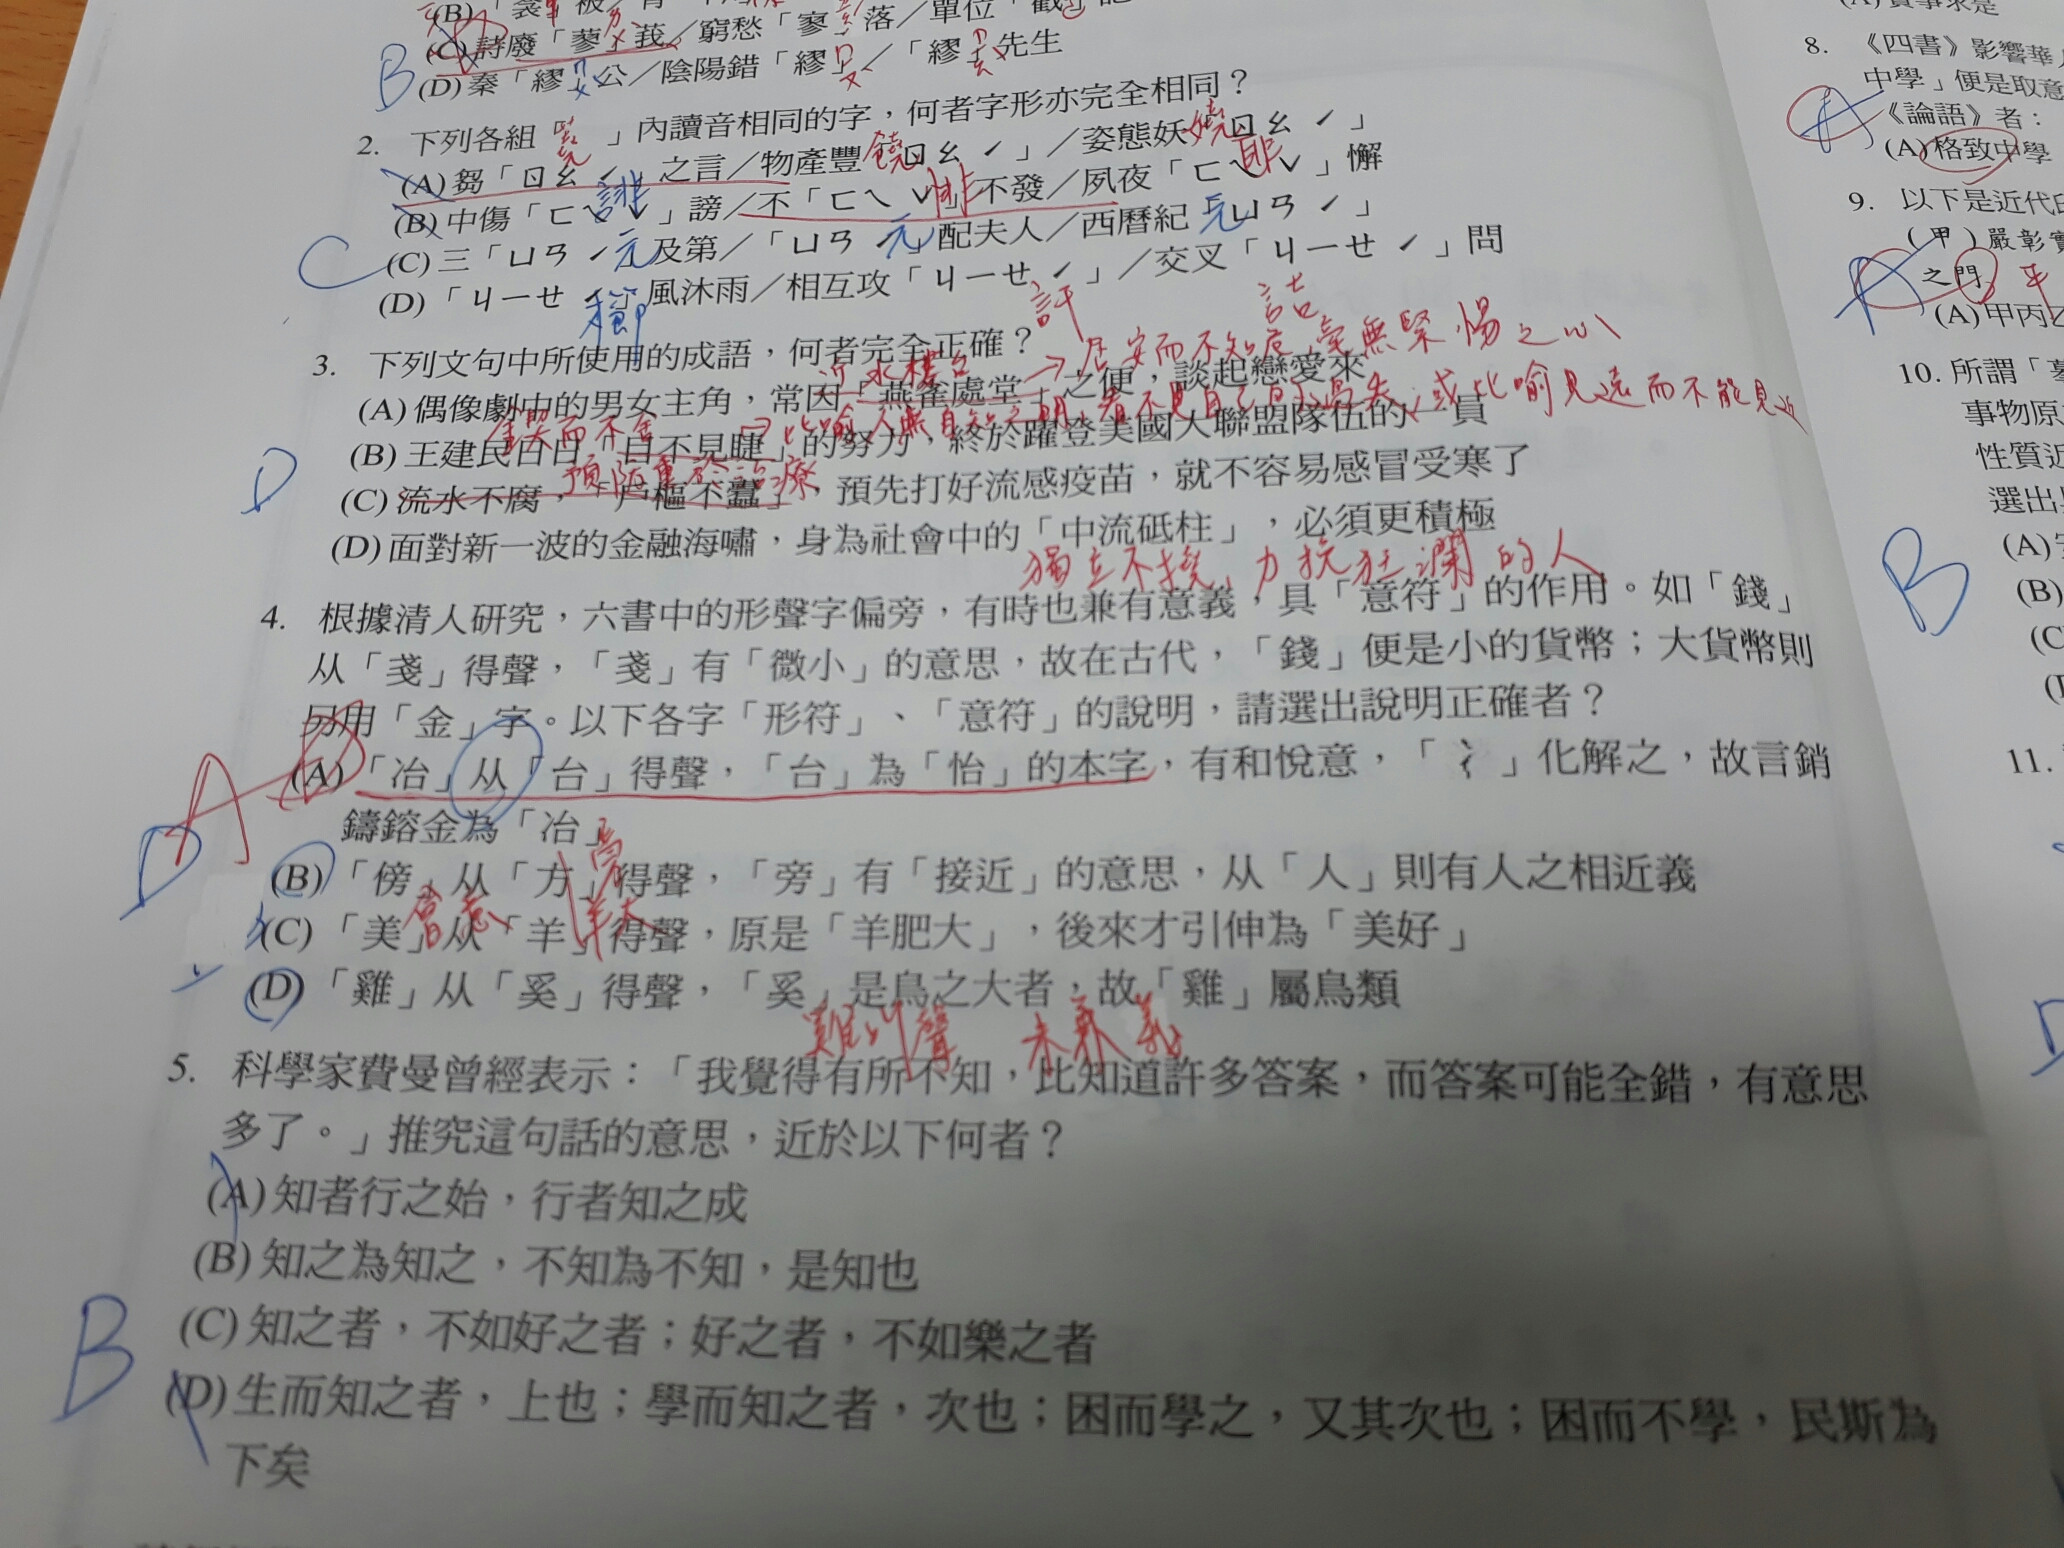 (C) 詩廢「蓼莪／窮愁「寥落／單位「戳」記
(D) 秦「繆公／陰陽錯「繆／「繆先生
B
2. 下列各組「」內讀音相同的字，何者字形亦完全相同？
(A) 芻「ㄖㄠˊ」之言／物產豐「ㄖㄠˊ」／姿態妖「ㄖㄠˊ」
蕘 饒 嬈
(B) 中傷「ㄈㄟˇ」謗／不「ㄈㄟˇ」不發／夙夜「ㄈㄟˇ」懈
誹 悱 匪
(C) 三「ㄩㄢˊ」及第／「ㄩㄢˊ」配夫人／西曆紀「ㄩㄢˊ」
元 元 元
C
(D) 「ㄐㄧㄝˊ」風沐雨／相互攻「ㄐㄧㄝˊ」／交叉「ㄐㄧㄝˊ」問
櫛 訐 詰
3. 下列文句中所使用的成語，何者完全正確？
近水樓台 → 居安而不知危，毫無緊惕之心
(A) 偶像劇中的男女主角，常因「燕雀處堂」之便，談起戀愛來
鍥而不舍 → 比喻人無自知之明，看不見自己的過失，或比喻見遠而不能見近
(B) 王建民日日「目不見睫」的努力，終於躍登美國大聯盟隊伍的一員
預防重於治療
(C) 流水不腐，「戶樞不蠹」，預先打好流感疫苗，就不容易感冒受寒了
D
(D) 面對新一波的金融海嘯，身為社會中的「中流砥柱」，必須更積極
獨立不撓，力挽狂瀾的人
4. 根據清人研究，六書中的形聲字偏旁，有時也兼有意義，具「意符」的作用。如「錢」
从「戔」得聲，「戔」有「微小」的意思，故在古代，「錢」便是小的貨幣；大貨幣則
另用「金」字。以下各字「形符」、「意符」的說明，請選出說明正確者？
(A) 「冶」从「台」得聲，「台」為「怡」的本字，有和悅意，「冫」化解之，故言銷
鑄鎔金為「冶」
A
D
(B) 「傍」从「方」得聲，「旁」有「接近」的意思，从「人」則有人之相近義
旁
(C) 「美」从「羊」得聲，原是「羊肥大」，後來才引伸為「美好」
會意 羊大
(D) 「雞」从「奚」得聲，「奚」是鳥之大者，故「雞」屬鳥類
聲 未兼義
5. 科學家費曼曾經表示：「我覺得有所不知，比知道許多答案，而答案可能全錯，有意思
多了。」推究這句話的意思，近於以下何者？
(A) 知者行之始，行者知之成
(B) 知之為知之，不知為不知，是知也
(C) 知之者，不如好之者；好之者，不如樂之者
B
(D) 生而知之者，上也；學而知之者，次也；困而學之，又其次也；困而不學，民斯為
下矣
(A) 實事求是
8. 《四書》影響華人
中學」便是取意
《論語》者：
(A) 格致中學
A
9. 以下是近代
(甲) 嚴彰實
之門
(A) 甲丙乙
A
10. 所謂「
事物原
性質近
選出
(A)
(B)
B
(C
11.
D